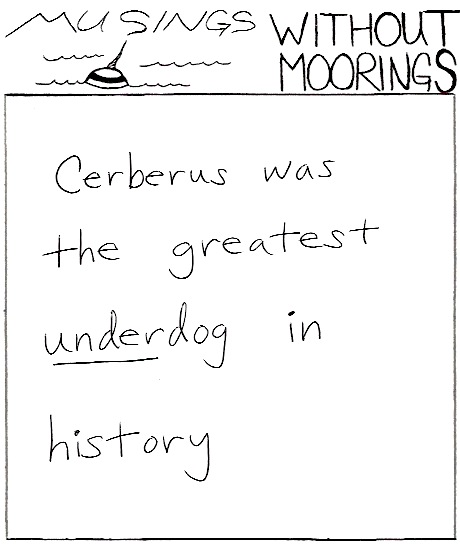 MUSINGS WITHOUT
MOORINGS
Cerberus was
the greatest
underdog in
history